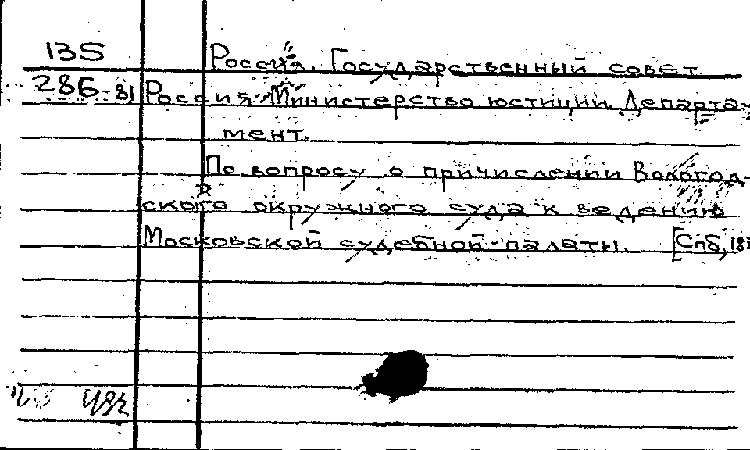 135 Россия. Государственный совет
286-81 Россия. Министерство юстиции. Департа-
мент.
По вопросу о причислении Вологод-
ского окружного суда к ведению
Московской судебной палаты. [Спб, 18